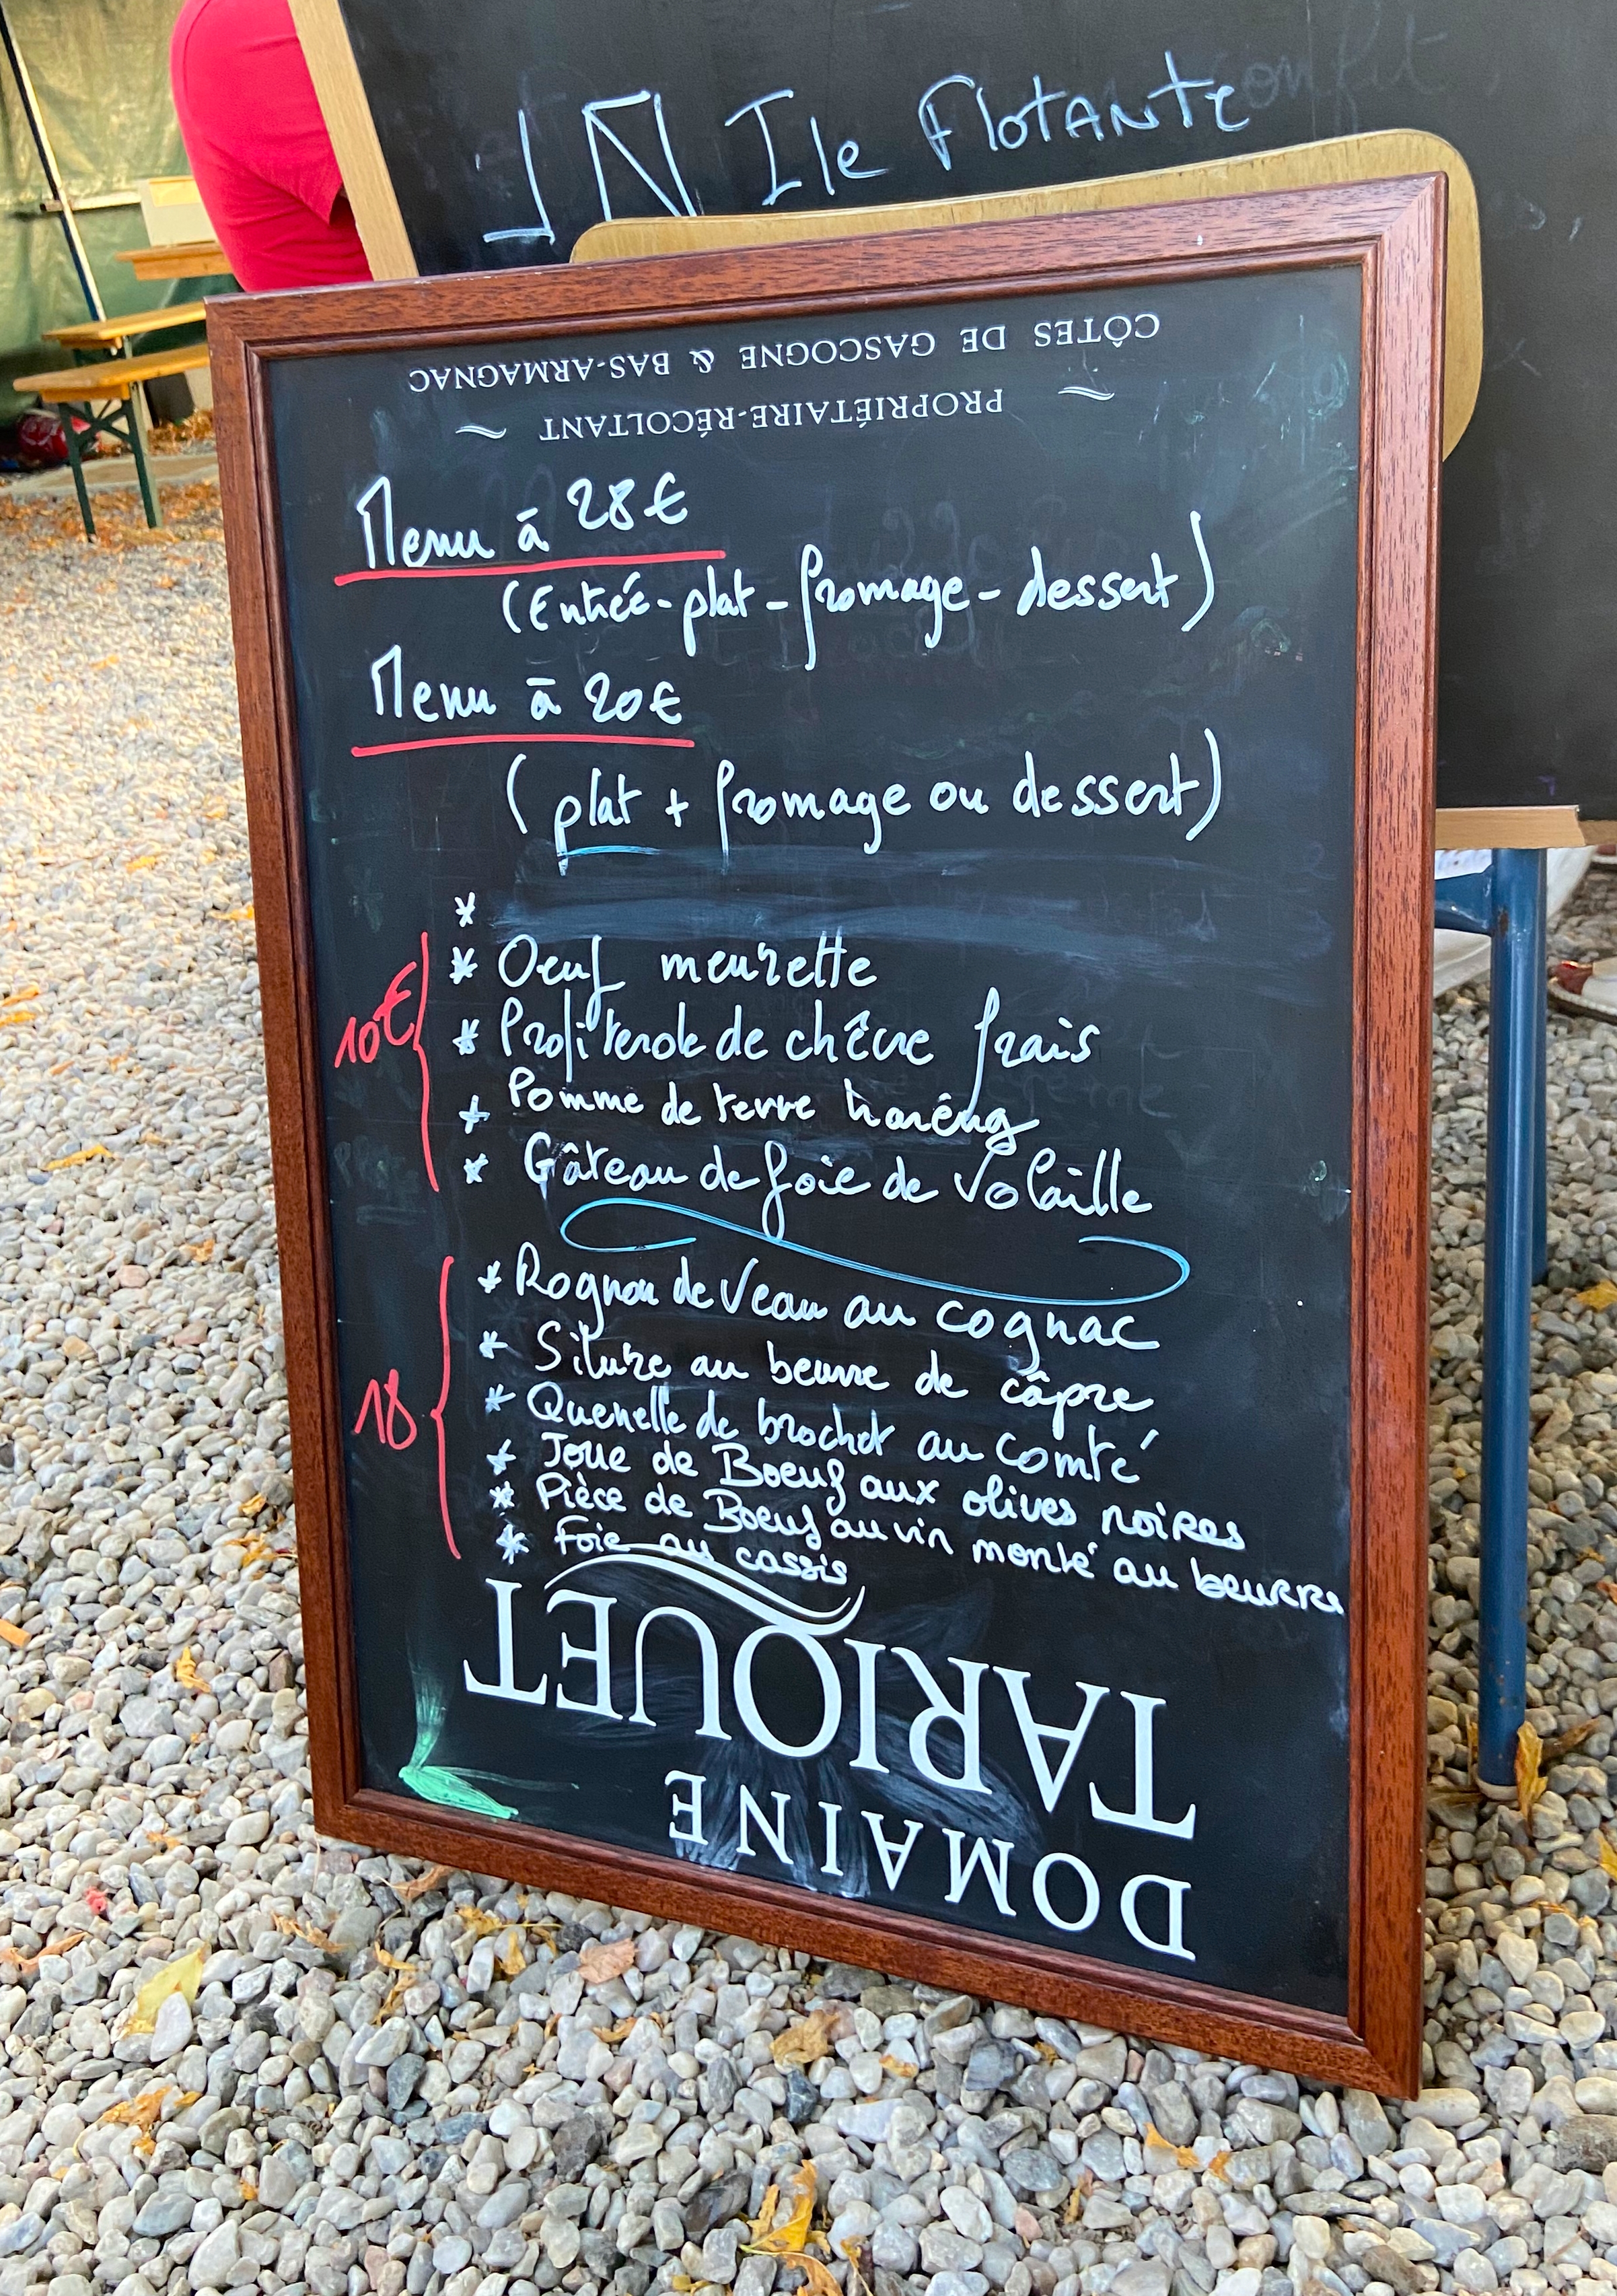 Ile Flotante
CÔTES DE GASCOGNE & BAS-ARMAGNAC
~ PROPRIÉTAIRE-RÉCOLTANT ~
Menu à 28€
(Entrée - plat - fromage - dessert)
Menu à 20€
( plat + fromage ou dessert)
*
* Oeuf meurette
10€
* Profiterole de chêvre frais
* Pomme de terre harêng
* Gâteau de foie de Volaille
* Rognon de Veau au cognac
* Silure au beurre de câpre
18
* Quenelle de brochet au Comté
* Joue de Boeuf aux olives noires
* Pièce de Boeuf au vin monté au beurre
* Foie au cassis
TARIQUET
DOMAINE